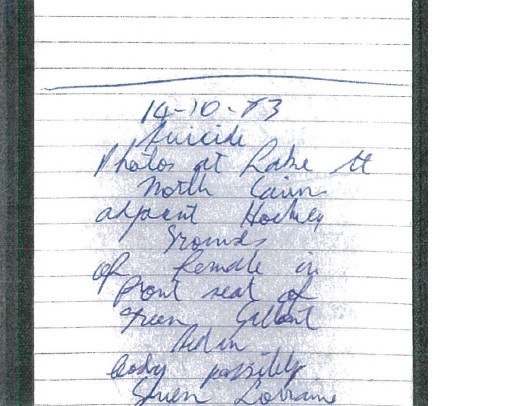 14-10-83
Suicide
Photos at Lake St
North Cairns
adjacent Hockey
Grounds
of female in
front seat of
Green Galant
Sedan
body possibly
Lorraine